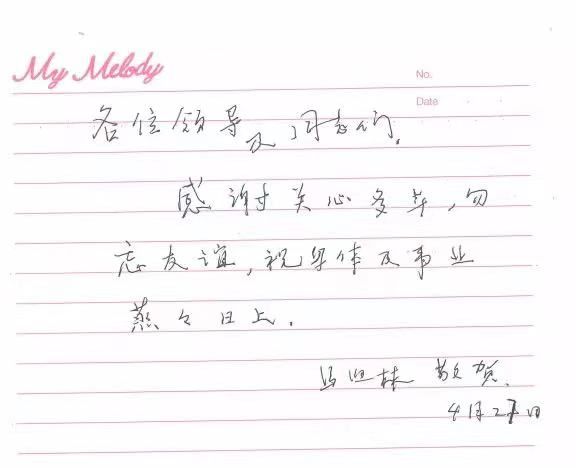 My Melody
No.
Date
各位领导及同志们.
感谢关心多年,勿
忘友谊,祝身体及事业
蒸々日上.
敬贺.
4月27日